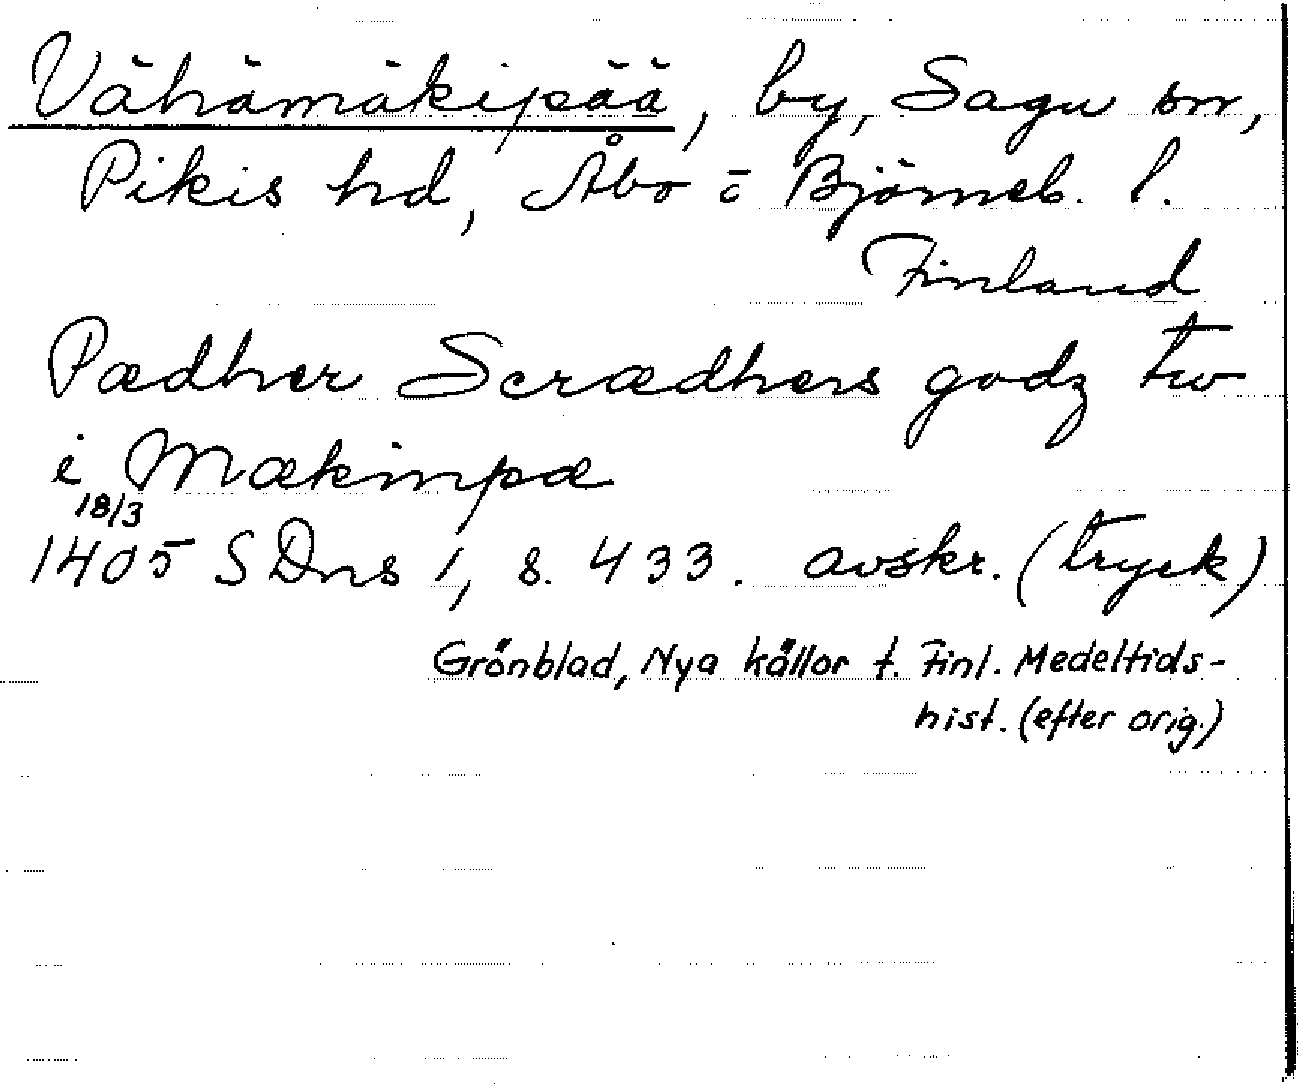 Vähämäkipää, by, Sagu sn,
Pikis hd, Åbo o Björneb. l.
Finland
Pædher Scrædhers godz tw
i Mækinpæ
18/3
1405 SDns 1, s. 433. avskr. (tryck)
Grönblad, Nya källor t. Finl. Medeltids-
hist. (efter orig.)